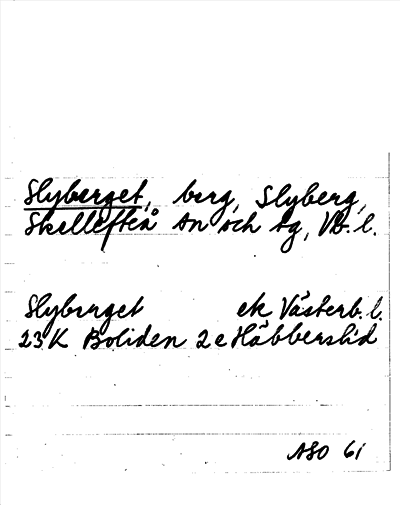 Slyberget, berg, Slyberg,
Skellefteå sn och sg, Vb. l.
Slyberget ek Västerb. l.
23K Boliden 2e Häbbersliden
ASO 61